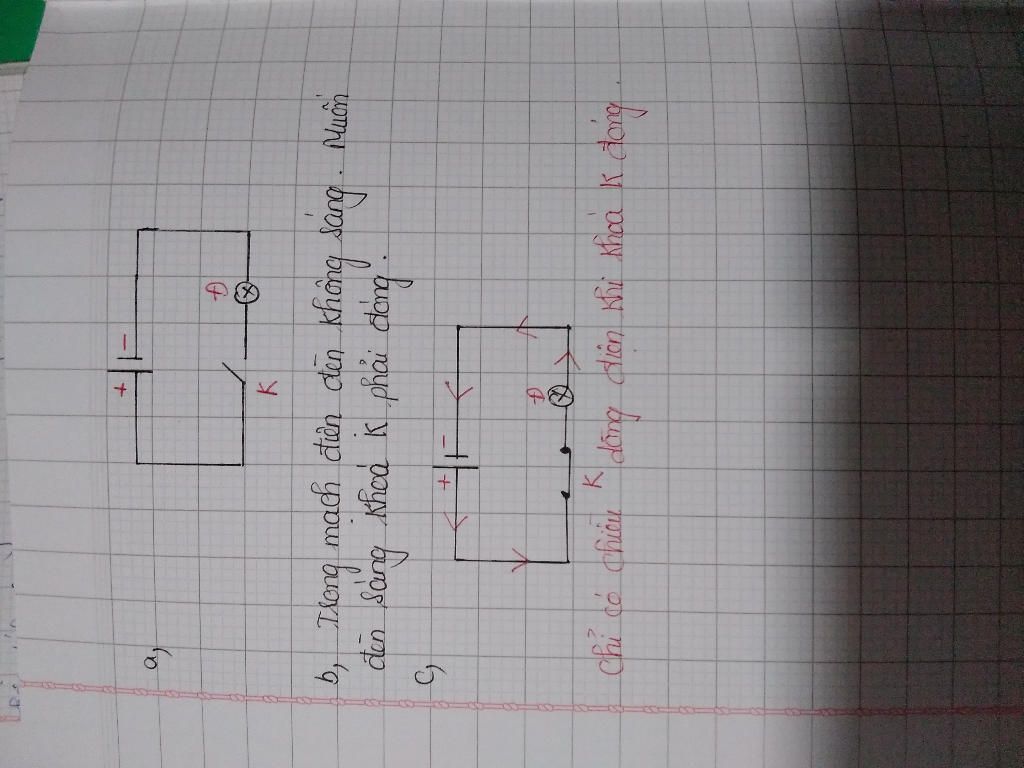 a,
+ -
Đ
K
b, Trong mạch điện đèn không sáng. Muốn
đèn sáng khoá K phải đóng.
c,
+ -
Đ
K
Chỉ có chiều dòng điện khi khoá K đóng.